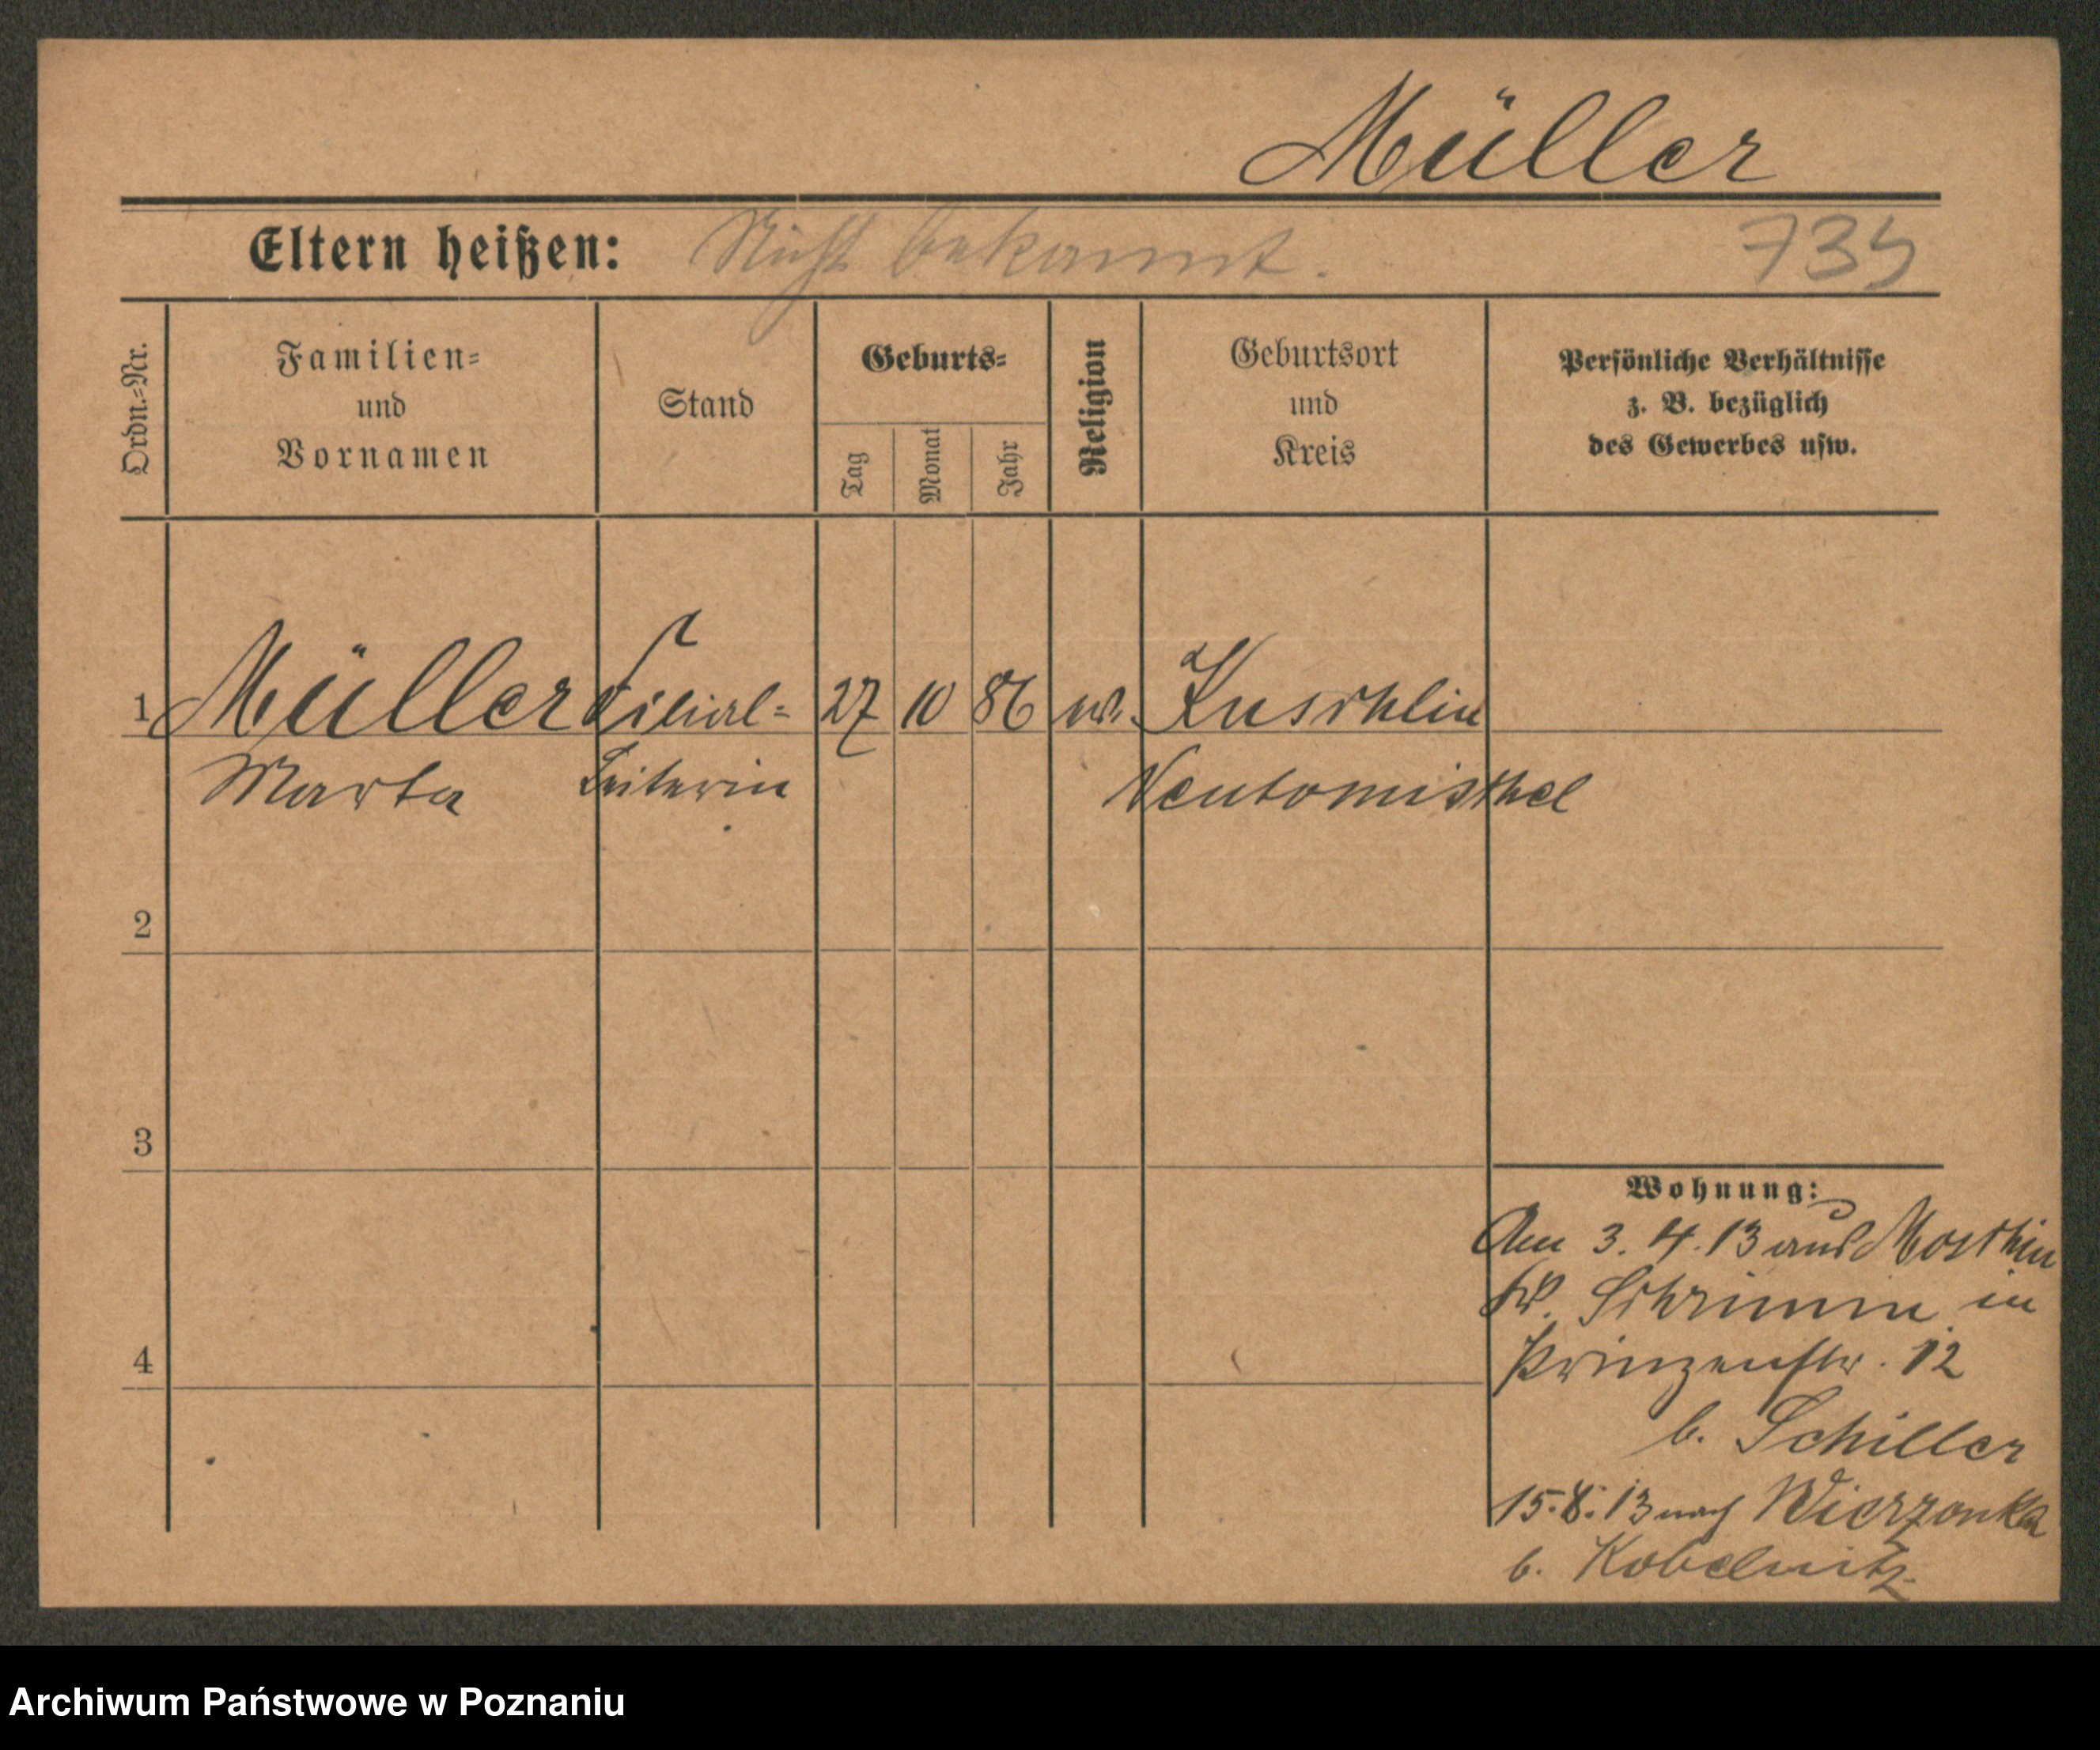 Müller
Eltern heißen: Nicht bekannt. 735
Ordn.-Nr.
Familien-
und
Vornamen
Stand
Geburts-
Tag
Monat
Jahr
Religion
Geburtsort
und
Kreis
Persönliche Verhältnisse
z. B. bezüglich
des Gewerbes usw.
1 Müller Filial- 27 10 86 ev. Kuschlin
Marta Leiterin Neutomischel
2
3
4
Wohnung:
Am 3. 4. 13 aus Moschin
Kr. Schrimm in
Prinzenstr. 12
b. Schiller
15.8.13 nach Wierzonka
b. Kobelnitz
Archiwum Państwowe w Poznaniu